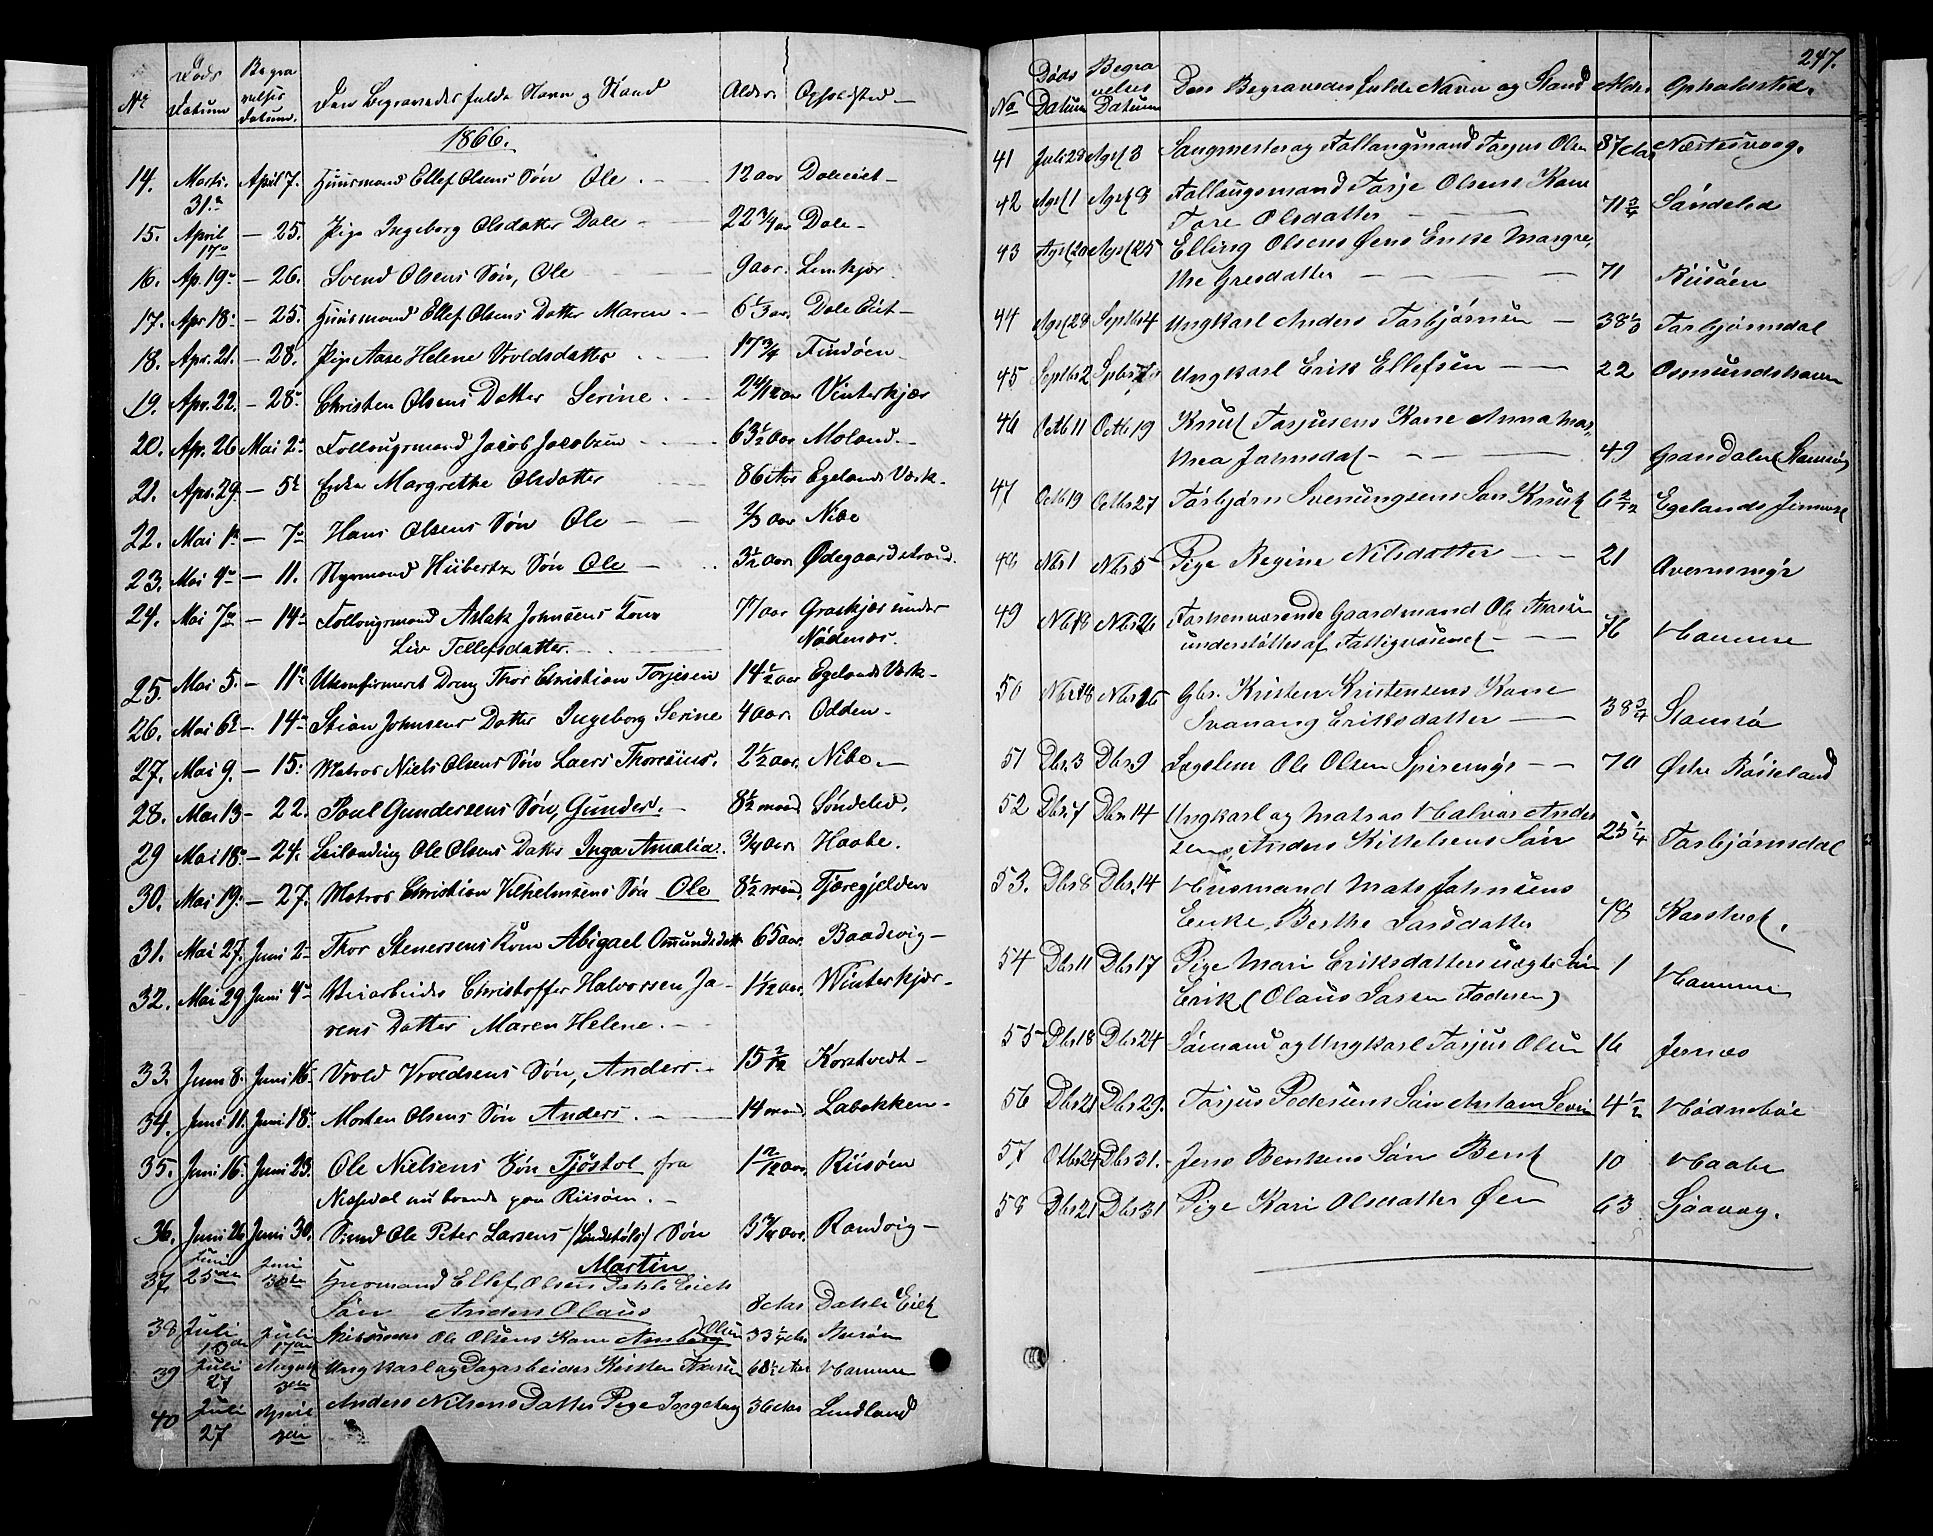 Døds Begra
No Datum velses Datum. Den Begravedes fulde Navn og Stand Alder Opholdsted
1866.
14. Marts. 31. April 7. Huusmand Ellef Olsens Søn Ole. 12 aar Dale
15. April 17 — 25. Pige Ingeborg Olsdatter Dale 22 3/4 aar Dale
16. Ap. 19 — 26. Svend Olsens Søn, Ole 9 aar. Limkjær
17. Apr 18 — 25. Huusmand Ellef Olsens Datter Maren 6 1/3 aar Dale Eiet
18. Apr. 21. — 28. Pige Aase Helene Vroldsdatter 17 3/4 Findöen
19. Apr. 22. — 28. Christen Olsens Datter Serine. Vinterkjær
20. Apr. 26 Mai 2. Follougsmand Jacob Jacobsen 63 1/2 aar Moland
21. Apr. 29. — 5. Enke Margrethe Olsdatter 86 Aar Egelands Værk
22. Mai 1 — 7 Hans Olsens Søn Ole 2/3 aar Nibe
23. Mai 4 — 11. Huberts Søn Ole 3 1/2 aar. Ødegaardstrand.
24. Mai 7 — 14 Follougsmand Aslak Johnsens Kone 77 aar Graskjær under
Liv Tellefsdatter. Nødenæs.
25. Mai 5. — 11 Ukonfirmeret Dreng Thor Christian Torjesen 14 1/2 aar Egelands Værk
26. Mai 6 — 14 Stian Johnsens Datter Ingeborg Serine 4 aar. Odden
27. Mai 9. — 15. Matros Niels Olsens Søn Laers Thoresius. 2 1/2 aar. Nibe.
28. Mai 13 — 22. Poul Gundersens Søn, Gunder. 8 1/2 maad Søndeled.
29 Mai 18 — 24. Leilænding Ole Olsens Datter Inga Amalia. 3/4 Aar. Haabe.
30. Mai 19. — 27. Matros Christian Vilhelmsens Søn Ole 8 1/2 maad. Tjæregjelden
31. Mai 27. Juni 2 Thor Stenersens Kone Abigael Omundsdatt 65 aar. Baadvig
32. Mai 29 Juni 4 Veiarbeider Christoffer Halvorsen Ja- 1 1/12 aar. Vinterkjær
rens Datter Maren Helene.
33. Juni 8. Juni 16. Vrold Vroldsens Søn, Anders. 15 2/12 Korstvedt
34. Juni 11. Juni 18. Morten Olsens Søn Anders. 14 maad. Labakken
35. Juni 16. Juni 23. Ole Nielsens Søn Tjöstol fra Riisöen
Nissedal nu boende paa Riisöen.
36. Juni 26 Juni 30. Ole Peter Larsens Søn 5 3/4 aar. Randvig
Martin
37 Juni 25de Juni 30te Huusmand Ellef Olsens Dahle Eiets
Søn Anders Olaus 8 Aar Dahle Eiet
38 Juli Juli 17de Ole Olsens Kone Anberg Olsen 33 1/4 Aar
39 Juli 27 August 3die Ungkarl og Dagarbeider Kristen Aasen 68 1/2 Aar Hamme
40 Juli 27 Anders Nilsens Datter Pige Ingeborg 36 Aar Lindland
247.
Døds Begra
No Datum velses Datum Den Begravedes fulde Navn og Stand Alder Opholdsted.
41 Juli 28 Agst 3 Sangmester og Follaugmand Tarjus Olsen 87 Aar Næsksvaag.
42 Agst 1 Agst 8 Follaugsmand Tarje Olsens Kone
Tore Olsdatter 71 3/4 Søndeled
43 Agst 20 Agst 25 Elling Olsens Øens Enke Margre-
the Gresdatter 71 Riisøen
44 Agst 28 Septbr 4 Ungkarl Anders Torbjørnsen 38 1/3 Torbjørnsdal
45 Septbr 2 Spbr 7 Ungkarl Erik Ellefsen 22 Osmundshavn
46 Octb 11 Octb 19 Knut Tarjusens Kone Anna Mar-
thea Jahnsdat 49 Grandalen Stamsø
47 Octb 19 Octbr 27 Torbjørn Svenungsens Søn Knut 6 2/12 Egelands Jernværk
48 Nbr 1 Nbr 5 Pige Regine Nilsdatter 21 Avernsmyr
49 Nbr 18 Nbr 26 Forhenværende Gaardmand Ole Aasen
understøttes af Fattigvæsenet 76 Hamme
50 Nbr 18 Nbr 26 Gbr. Kristen Kristensens Kone
Svanaug Eriksdatter 38 3/4 Stamsø
51 Dbr. 3 Dbr 9 Lægslem Ole Olsen Spiremyr 70 Østre Røiseland
52 Dbr. 7 Dbr 14 Ungkarl og Matros Halvor Ander-
sen, Anders Kittelsens Søn 25 1/4 Torbjørnsdal
53. Dbr 8 Dbr. 14 Husmand Mats Jahnsens
Enke, Berthe Larsdatter 78 Karstvet.
54 Dbr 11 Dbr 17 Pige Mari Eriksdatters uægte Søn 1
Erik (Olaus Larsen Faderen) Hamme
55 Dbr 18 Dbr 24 Sømand og Ungkarl Tarjus Olsen 16 Jernæs
56 Dbr 21 Dbr 29. Tarjus Pedersens Søn Anton Severin 4 1/2 Hødnebøe
57 Dbr 31. Jens Bentsens Søn Bent 10 Haabe
58 Dbr 21 Dbr 31 Pige Kari Olsdatter Øen 63 Sjaavaag.